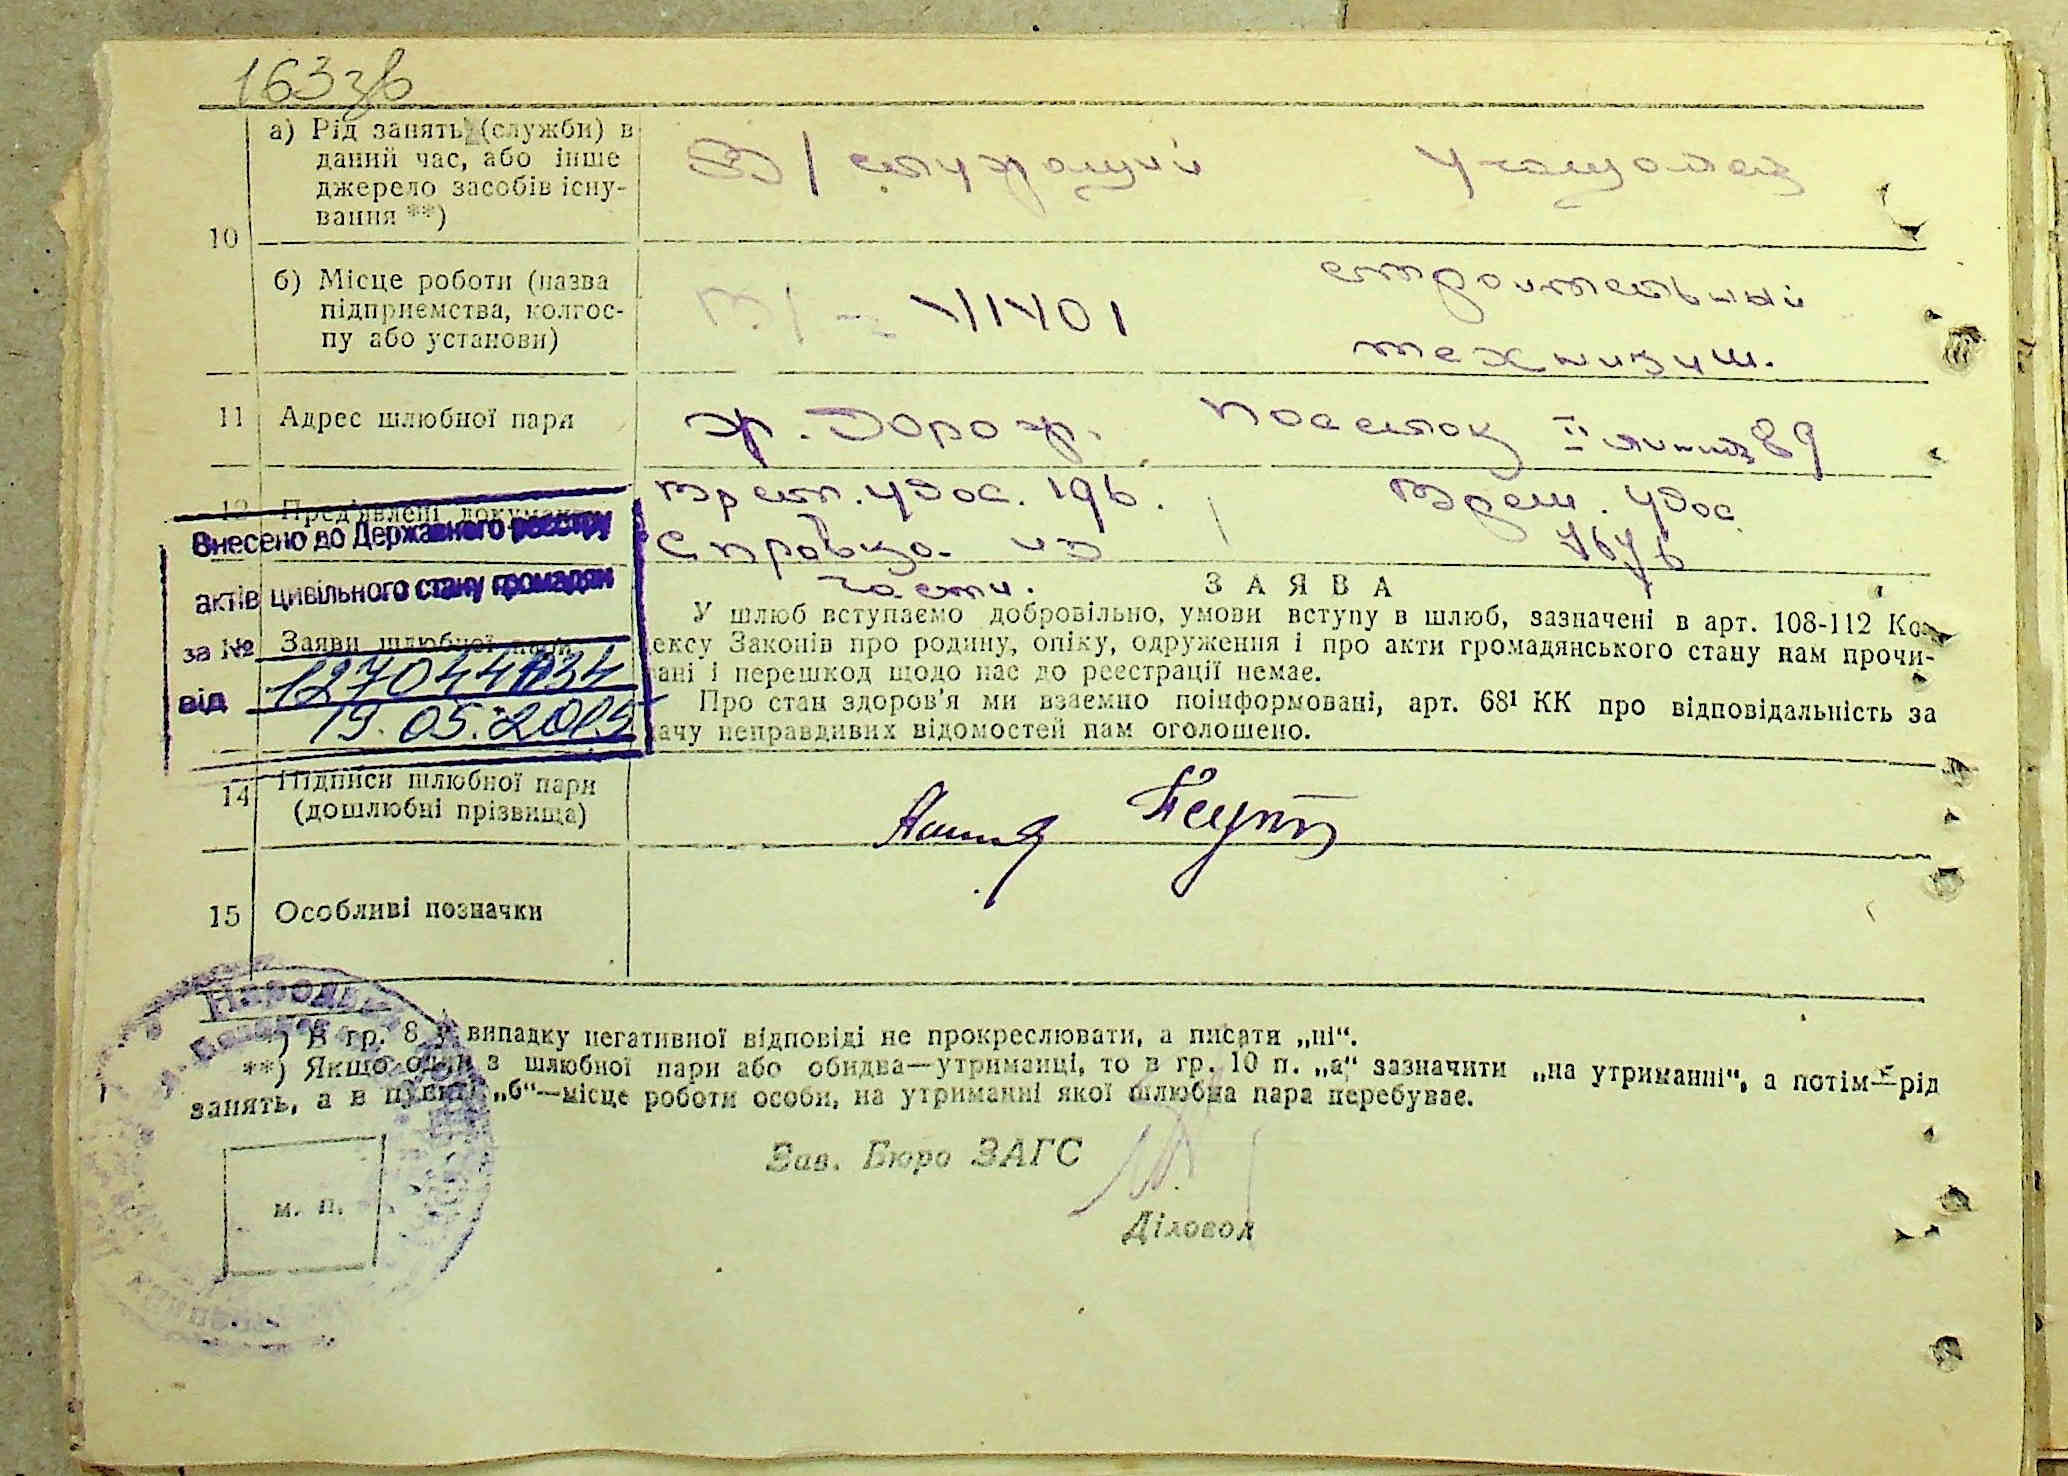 163зв
а) Рід занять (служби) в
даний час, або інше
джерело засобів існу-
вання **)
В/служащий
Учащаяся
10
б) Місце роботи (назва
підприємства, колгос-
пу або установи)
строительный
техникум.
11 Адрес шлюбної пари
посёлок II линия 89
12 Пред'явлені документи
Врем. удос. 196.
Справка из
части.
Врем. удос.
Внесено до Державного реєстру
актів цивільного стану громадян
за №
від 19.05.2015
Заяви шлюбної пари
ЗАЯВА
У шлюб вступаємо добровільно, умови вступу в шлюб, зазначені в арт. 108-112 Ко-
ексу Законів про родину, опіку, одруження і про акти громадянського стану нам прочи-
ані і перешкод щодо нас до реєстрації немає.
Про стан здоров'я ми взаємно поінформовані, арт. 68¹ КК про відповідальність за
ачу неправдивих відомостей нам оголошено.
14 Підписи шлюбної пари
(дошлюбні прізвища)
15 Особливі позначки
*) В гр. 8 у випадку негативної відповіді не прокреслювати, а писати „ні“.
**) Якщо один з шлюбної пари або обидва—утриманці, то в гр. 10 п. „а“ зазначити „на утриманні“, а потім—рід
занять, а в пункті „б“—місце роботи особи, на утриманні якої шлюбна пара перебуває.
Зав. Бюро ЗАГС
м. п.
Діловод